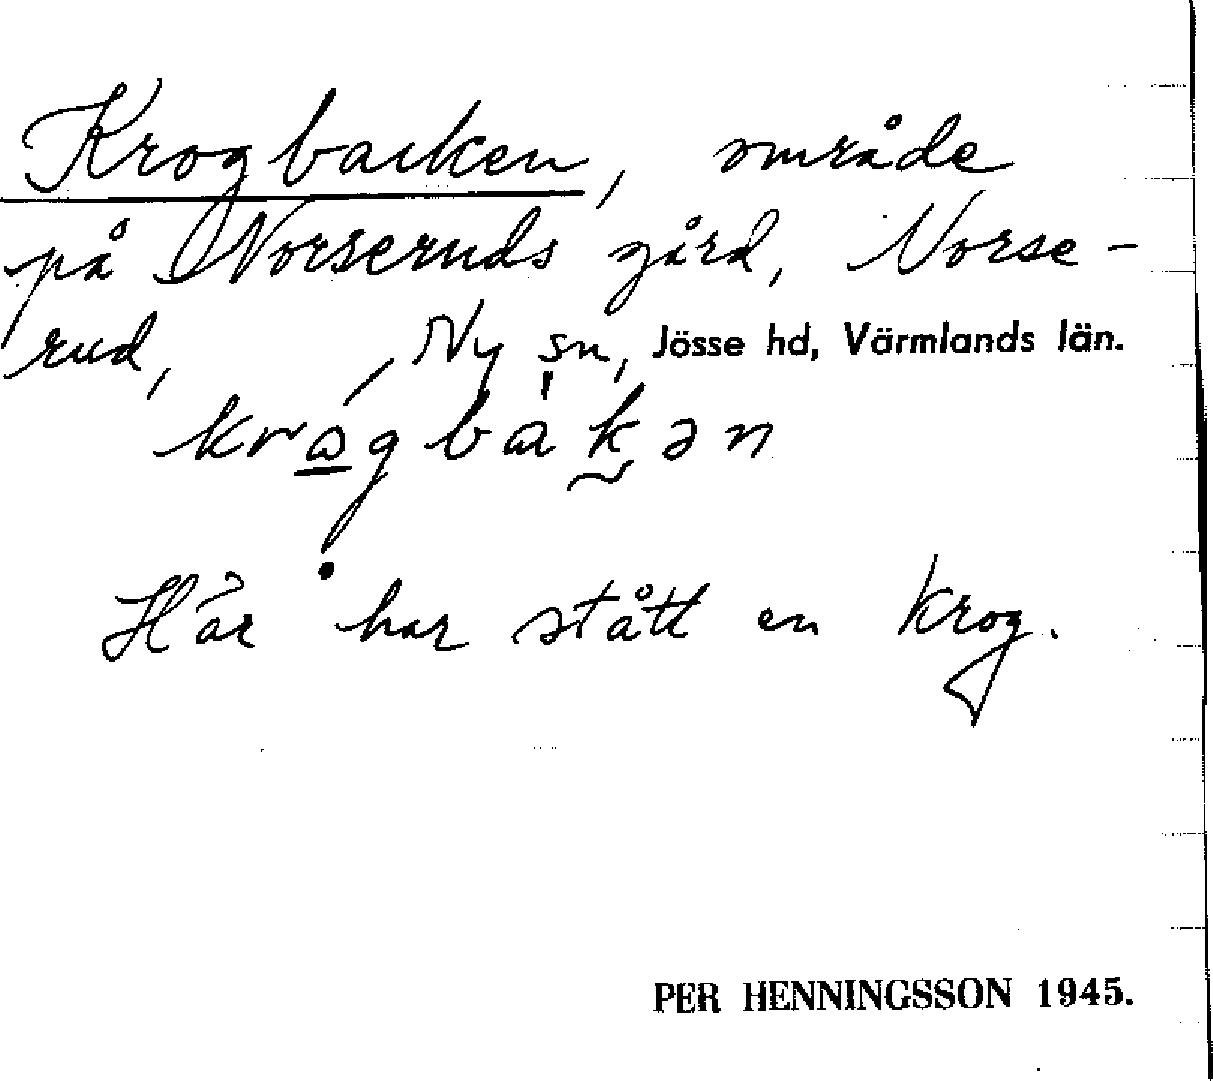 Krogbacken, område
på Norseruds gård, Norse-
rud, Ny sn, Jösse hd, Värmlands län.
krɷ́gbàkən
Här har stått en krog.
PER HENNINGSSON 1945.